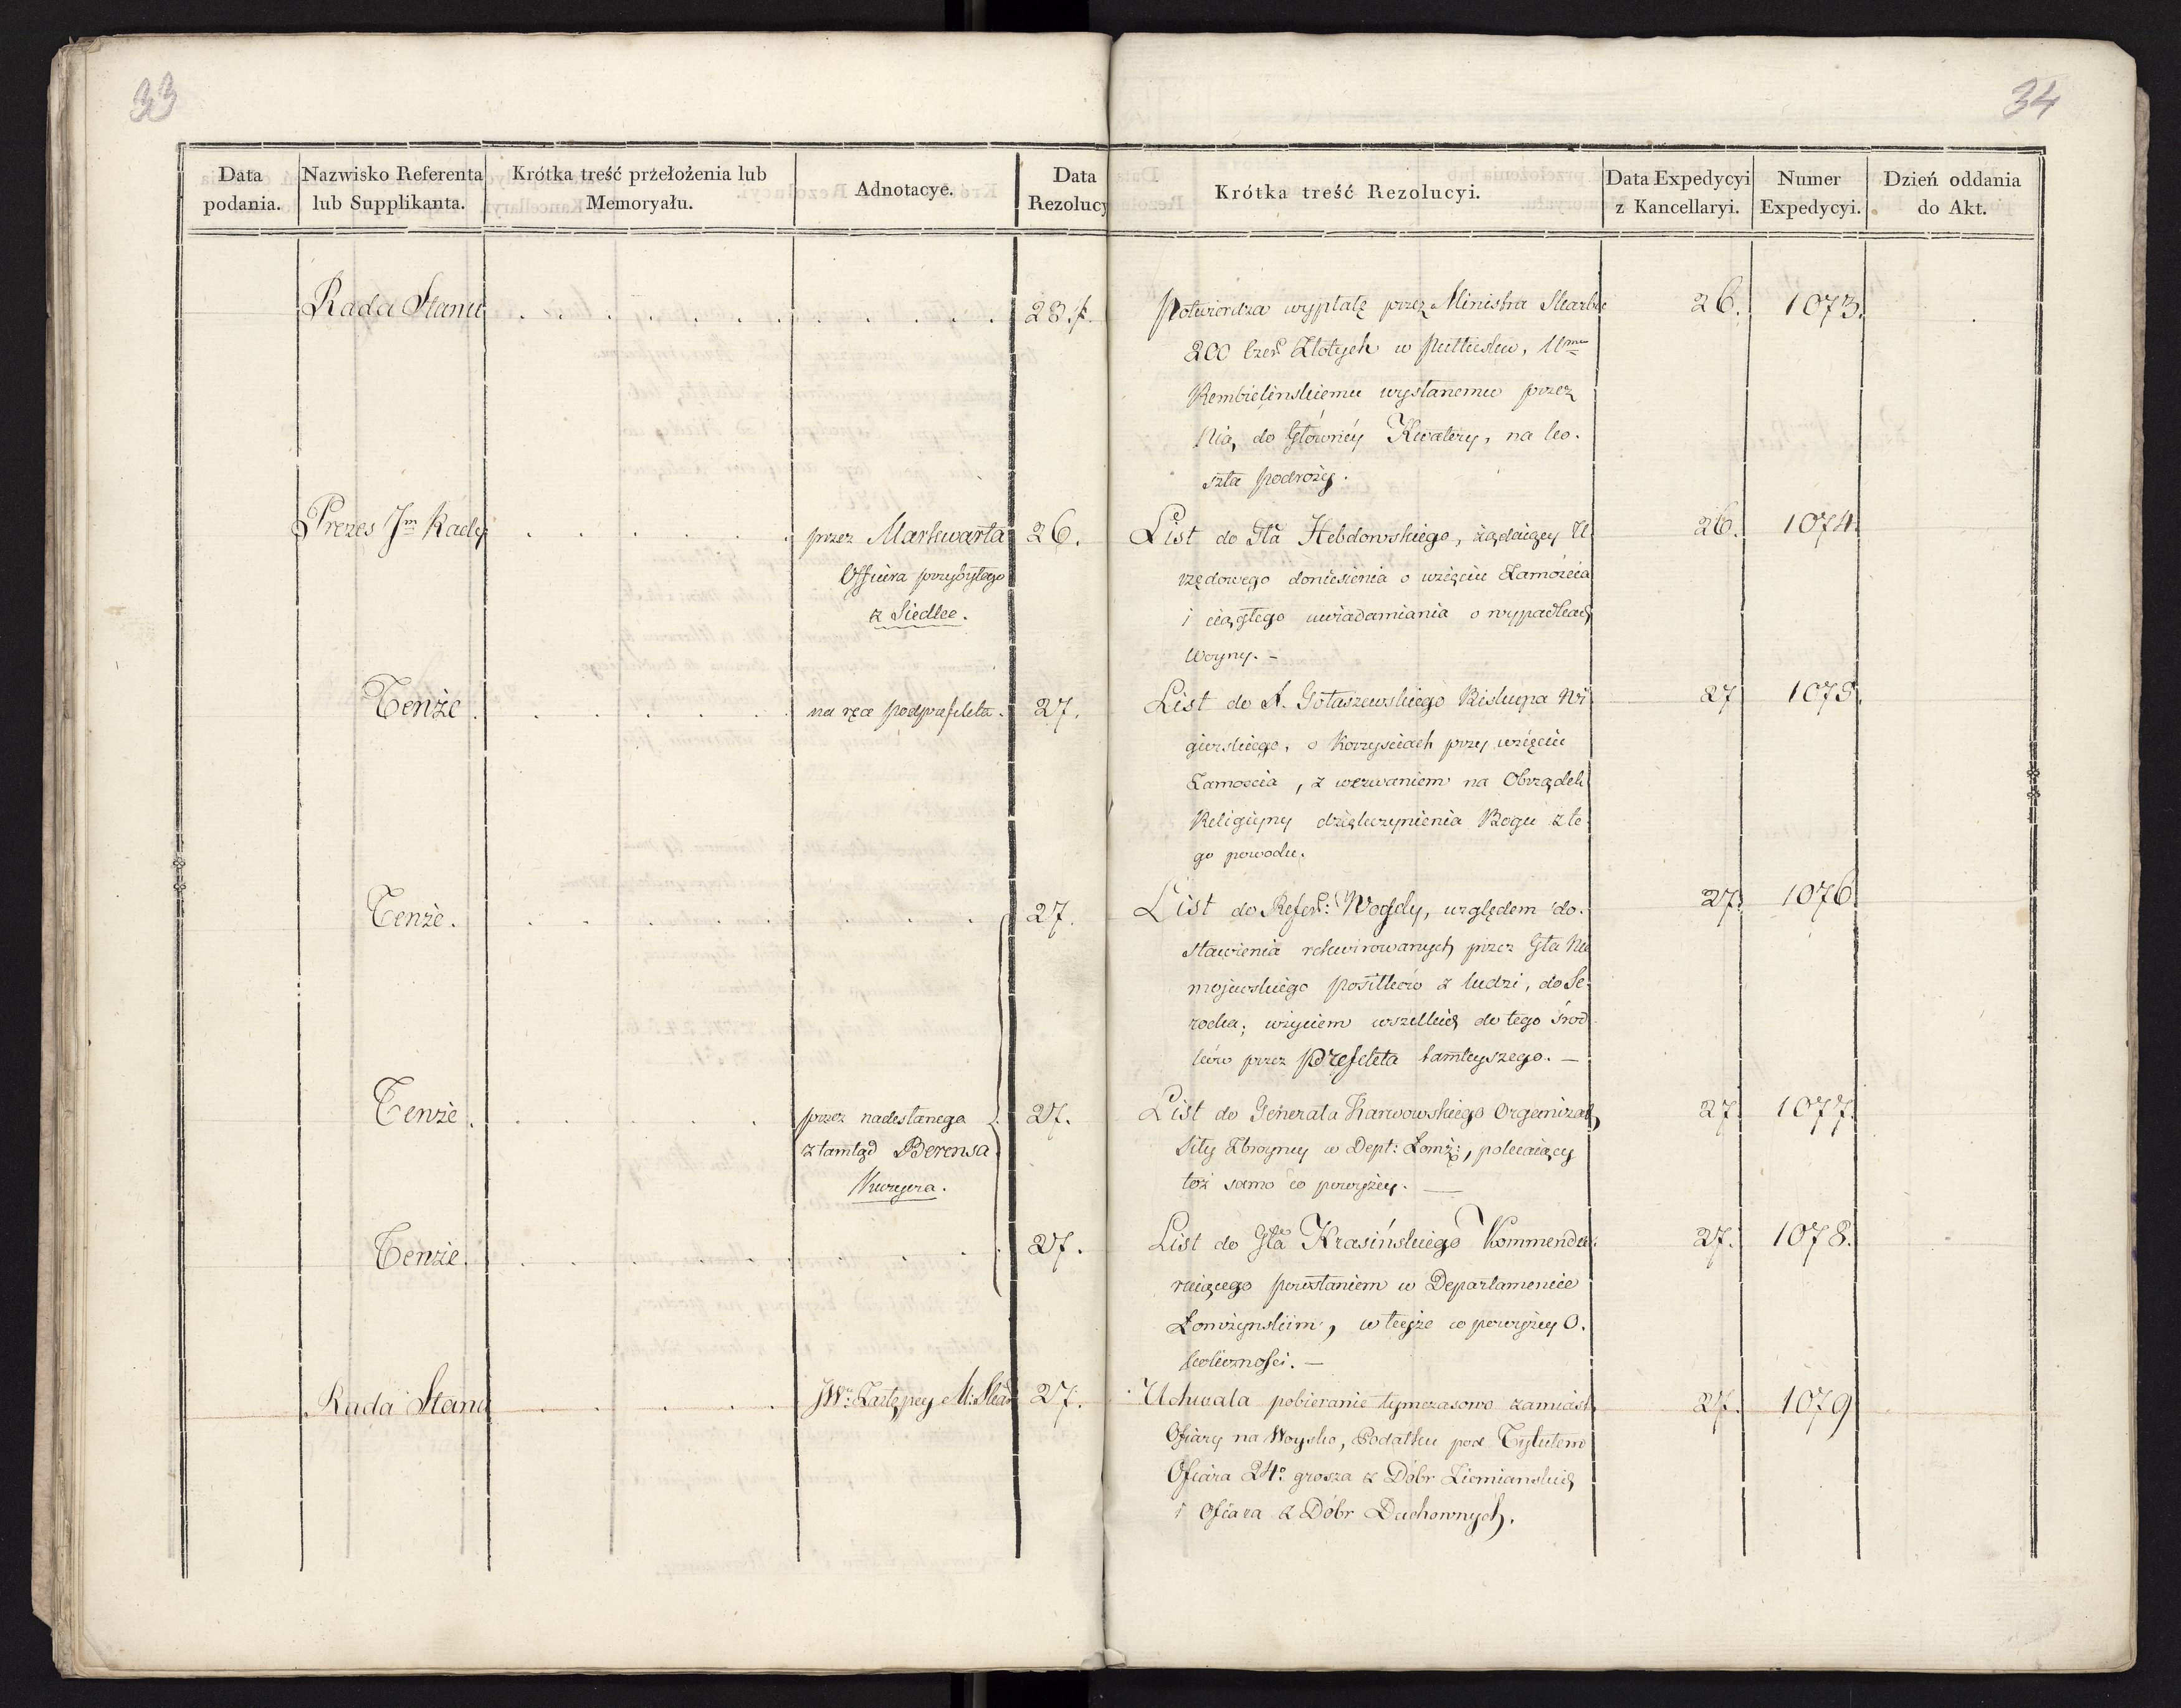 33
34
Data podania.
Nazwisko Referenta lub Supplikanta.
Krótka treść przełożenia lub Memoryału.
Adnotacye.
Data Rezolucy
Krótka treść Rezolucyi.
Data Expedycyi z Kancellaryi.
Numer Expedycyi.
Dzień oddania do Akt.
Rada Stanu
Potwierdza wypłatę przez Ministra Skarbu
26. 1073.
200 Czer: Złotych w Pułtusku,
Rembielinskiemu wysłanemu przez
Nią, do Głowney Kwatery, na ko-
szta podroży.
Prezes Jm Rady
przez Markwarta
26.
List do Gła Hebdowskiego, żądaiący U-
26. 1074.
Officera przybyłego
z Siedlec.
rzędowego doniesienia o wzięciu Zamościa
i ciągłego uwiadamiania o wypadkach
Woyny. -
Tenże.
na ręce Podprefekta.
27.
List do A. Gołaszewskiego Biskupa Wi-
27 1075.
gierskiego, o korzyściach przy wzięciu
Zamościa, z wezwaniem na Obrządek
Religiyny dziękczynienia Bogu z te-
go powodu.
Tenże.
27.
List do Refer: Wogdy, względem do-
27. 1076
stawienia rekwirowanych przez Gła Nie
mojewskiego posiłków z ludzi, do Se-
rocka; użyciem wszelkich do tego środ-
ków przez Prefekta tamteyszego. —
Tenże.
przez nadesłanego
27.
List do Generała Karwowskiego Organizat
27. 1077.
ztamtąd Berensa
Kuryera.
Siły Zbroyney w Dept: Łomż:, polecaiący
toż samo co powyżey. —
Tenże.
27.
List do Gła Krasińskiego Kommende-
27. 1078.
ruiącego powstaniem w Departamencie
Łomżynskim, w teyże co powyżey O-
koliczności. —
Rada Stanu
JW: Zastępcy M: Skar
27.
Uchwala pobieranie tymczasowo zamiast
27. 1079
Ofiary na Woysko, Podatku pod Tytułem
Ofiara 24º grosza z Dóbr Ziemianskich
i Ofiara z Dóbr Duchownych.